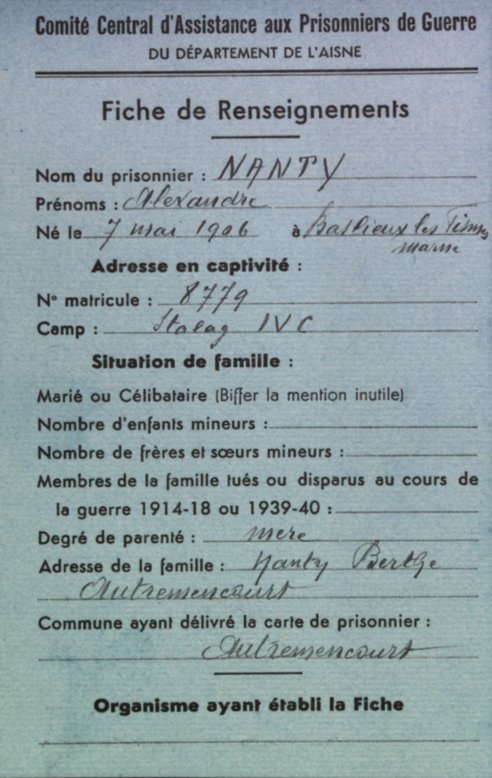 Comité Central d'Assistance aux Prisonniers de Guerre
DU DÉPARTEMENT DE L'AISNE
Fiche de Renseignements
Nom du prisonnier : NANTY
Prénoms : Alexandre
Né le 7 mai 1906 à les
marne
Adresse en captivité :
N° matricule : 8779
Camp : Stalag IV C
Situation de famille :
Marié ou Célibataire (Biffer la mention inutile)
Nombre d'enfants mineurs :
Nombre de frères et sœurs mineurs :
Membres de la famille tués ou disparus au cours de
la guerre 1914-18 ou 1939-40 :
Degré de parenté : mere
Adresse de la famille : Nanty Berthe
Autremencourt
Commune ayant délivré la carte de prisonnier :
Autremencourt
Organisme ayant établi la Fiche